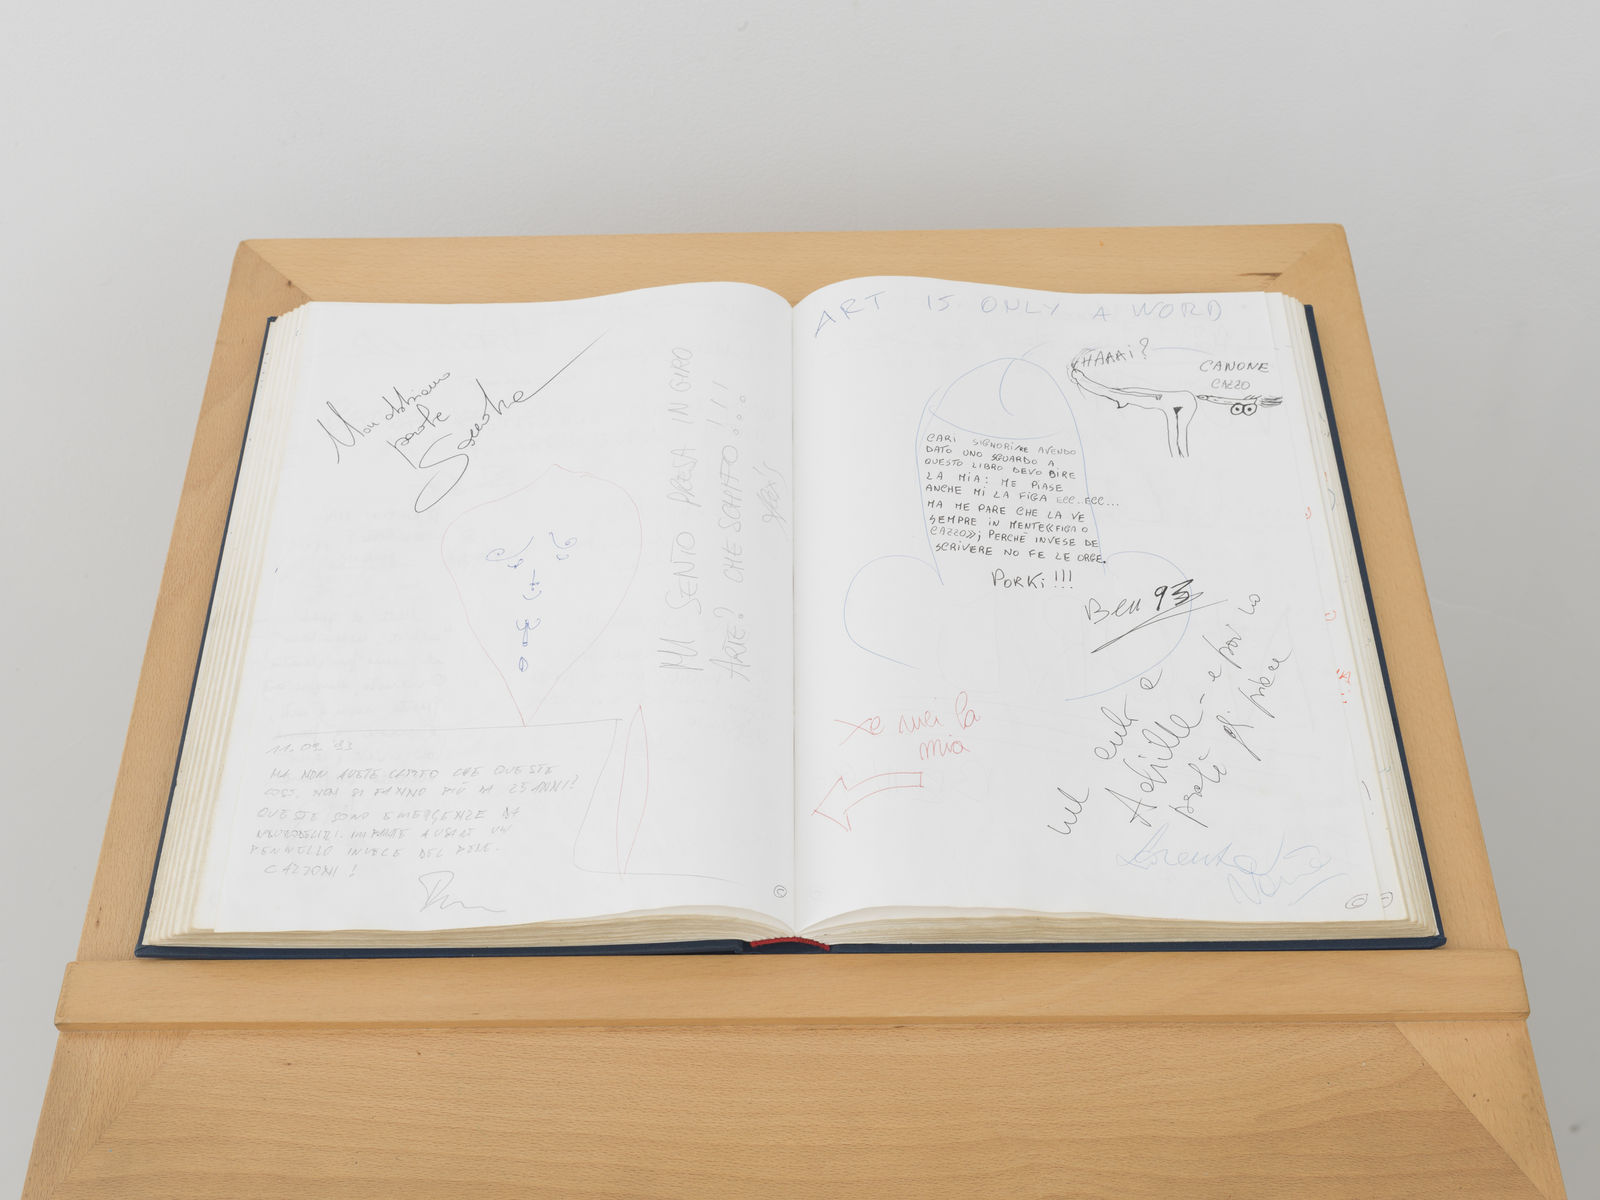 Non abbiamo
parole
MI SENTO PRESA IN GIRO
ARTE? CHE SCHIFO!!!
11.09.'93
MA NON AVETE CAPITO CHE QUESTE
COSE NON SI FANNO PIÙ DA 25 ANNI?
QUESTE SONO EMERGENZE DA
IMPARATE A USARE UN
PENNELLO INVECE DEL PENE.
CAZZONI!
ART IS ONLY A WORD
HAAAi?
CANONE
CAZZO
CARI SIGNORI/RE AVENDO
DATO UNO SGUARDO A
QUESTO LIBRO DEVO DIRE
LA MIA: ME PIASE
ANCHE MI LA FIGA ECC. ECC...
MA ME PARE CHE LA VE
SEMPRE IN MENTE<<FIGA O
CAZZO>>; PERCHÈ INVESE DE
SCRIVERE NO FE LE ORGE.
PORKi!!!
Ben 93
Xe mei la
mia
nel culo a
Achille - e poi ho
perchè gli piace
Lorenzo